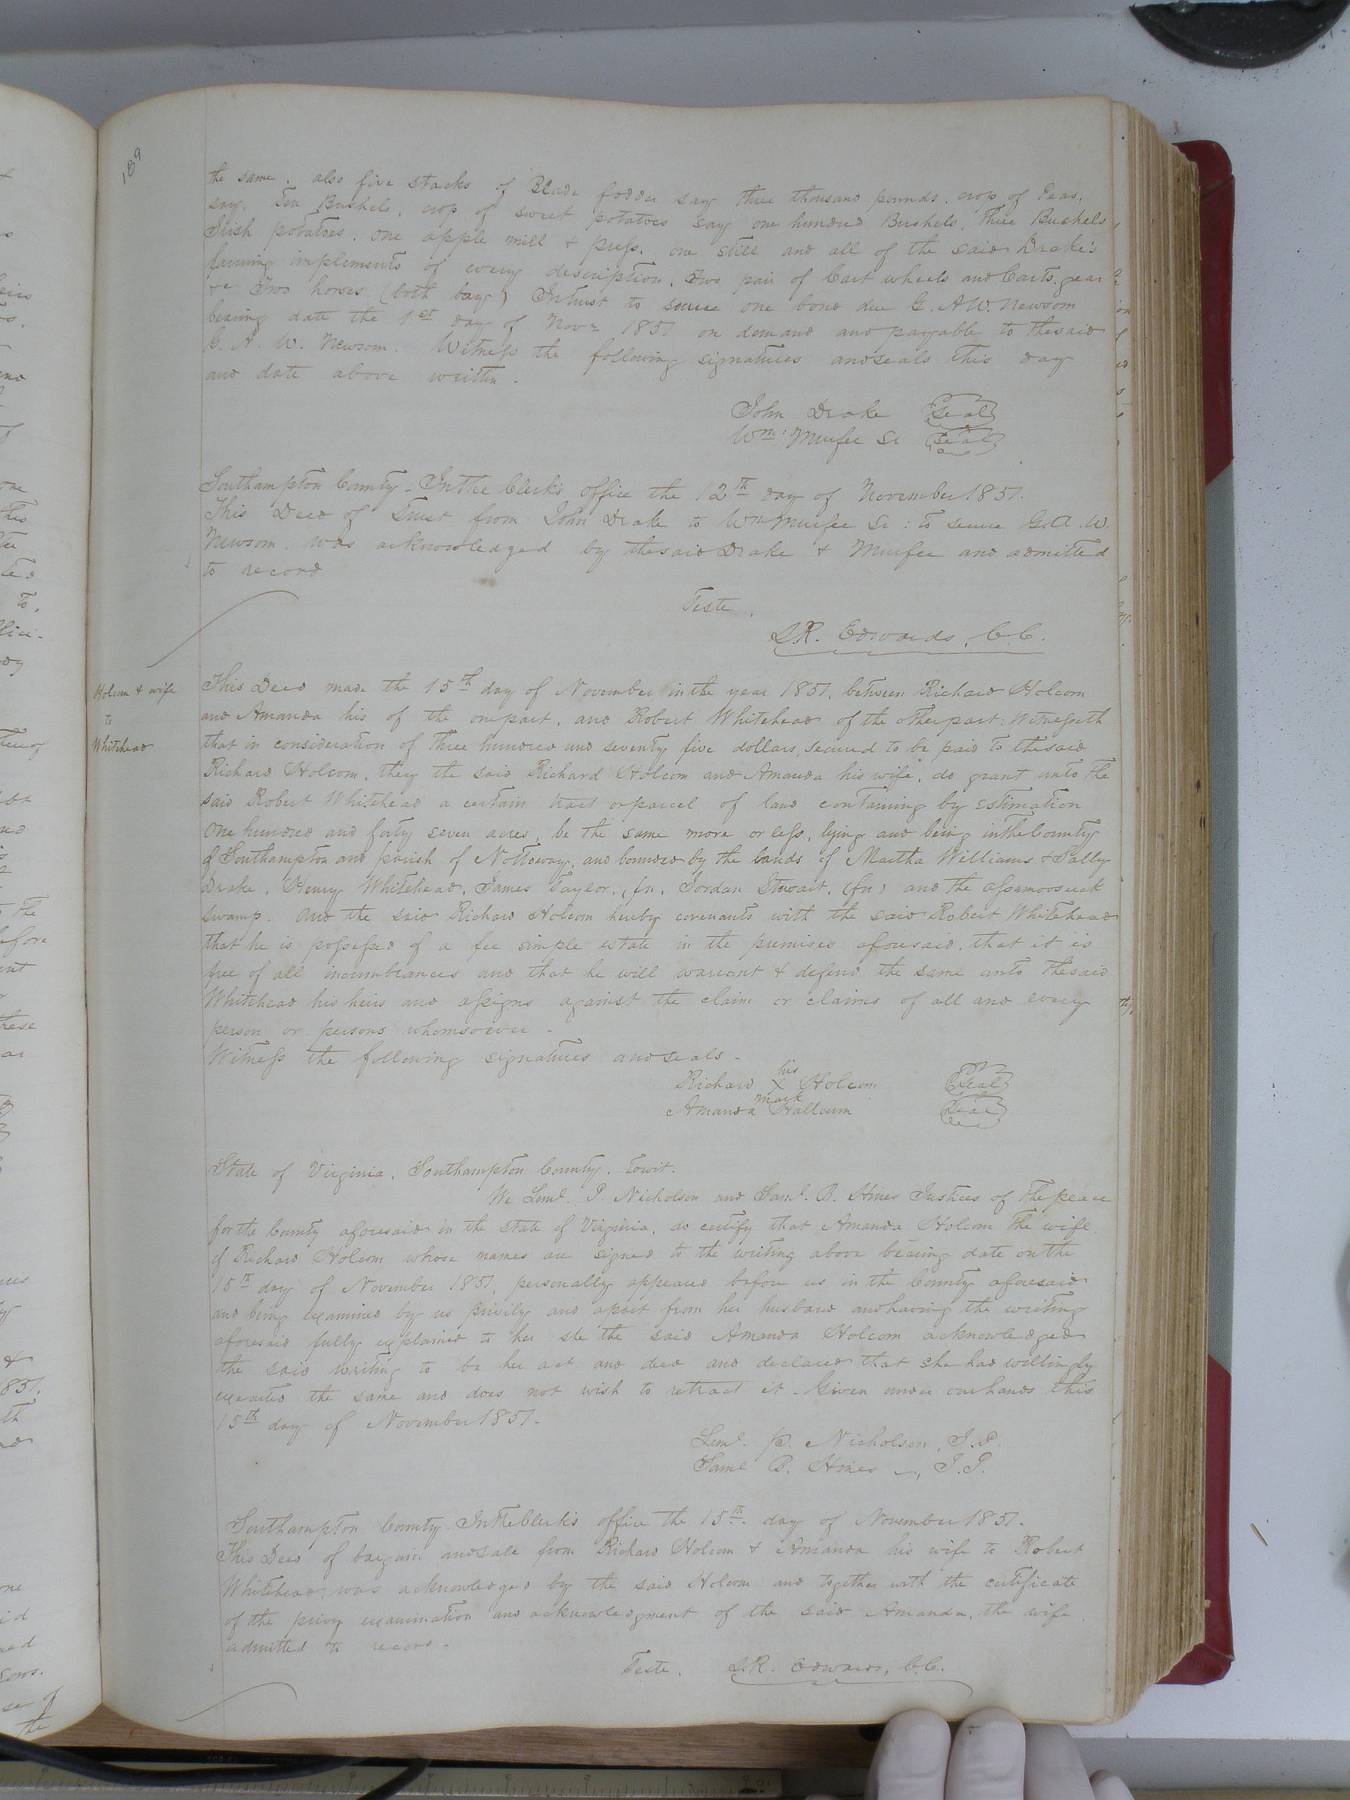 189
the same. also five stacks of Blade fodder say three thousand pounds. crop of Peas,
say, Ten Bushels, crop of sweet potatoes say one hundred Bushels, Three Bushels
Irish potatoes. one apple mill & press. one still and all of the said Drake's
farming implements of every description, Two pair of Cart wheels and Carts. gear
&c Two horses (both bays) Intrust to secure one bond due G. A W. Newsom
bearing date the 1st day of Novr 1851 on demand and payable to thesaid
G. A. W. Newsom. Witness the following signatures andseals this day
and date above written.
John Drake Seal
Wm: Murfee Sr Seal
Southampton County. In the Clerk's office the 12th day of November 1851.
This Deed of Trust from John Drake to Wm Murfee Sr: to secure G. A. W.
Newsom. was acknowledged by thesaid Drake & Murfee and admitted
to record
Teste.
L.R. Edwards, C.C.
Holcom & wife
to
Whitehead
This Deed made the 15th day of November in the year 1851, between Richard Holcom
and Amanda his of the onepart, and Robert Whitehead of the otherpart: Witnesseth
that in consideration of three hundred and seventy five dollars, secured to be paid to thesaid
Richard Holcom, they the said Richard Holcom and Amanda his wife, do grant unto the
said Robert Whitehead a certain tract orparcel of land containing by estimation
One hundred and forty seven acres, be the same more or less, lying and being inthe County
of Southampton and parish of Nottoway, and bounded by the lands of Martha Williams & Sally
Drake, Henry Whitehead, James Taylor, (fn, Jordan Stewart, (fn) and the assamoosuck
swamp. and the said Richard Holcom hereby covenants with the said Robert Whitehead
that he is possessed of a fee simple estate in the premises aforesaid, that it is
free of all incumbrances and that he will warrant & defend the same unto thesaid
Whitehead his heirs and assigns against the claim or claims of all and every
person or persons whomsoever.
Witness the following signatures andseals.
his
Richard X Holcom Seal
mark
Amanda Hallcum Seal
State of Virginia, Southampton County. Towit:
We Leml. P. Nicholson and Saml. B. Hines Justices of the peace
for the County aforesaid in the state of Virginia, do certify that Amanda Holcom the wife
of Richard Holcom whose names are signed to the writing above bearing date on the
15th day of November 1851, personally appeared before us in the County aforesaid
and being examined by us privily and apart from her husband and having the writing
aforesaid fully explained to her she the said Amanda Holcom acknowledged
the said writing to be her act and deed and declared that she had willingly
executed the same and does not wish to retract it. Given under ourhands this
15th day of November 1851.
Leml. P. Nicholson, J.P.
Saml B. Hines, J.P.
Southampton County In the Clerk's office the 15th. day of November 1851.
This Deed of bargain andsale from Richard Holcom & Amanda his wife to Robert
Whitehead, was acknowledged by the said Holcom and together with the certificate
of the privy examination and acknowledgment of the said Amanda, the wife
admitted to record.
Teste. L.R. Edwards, C.C.